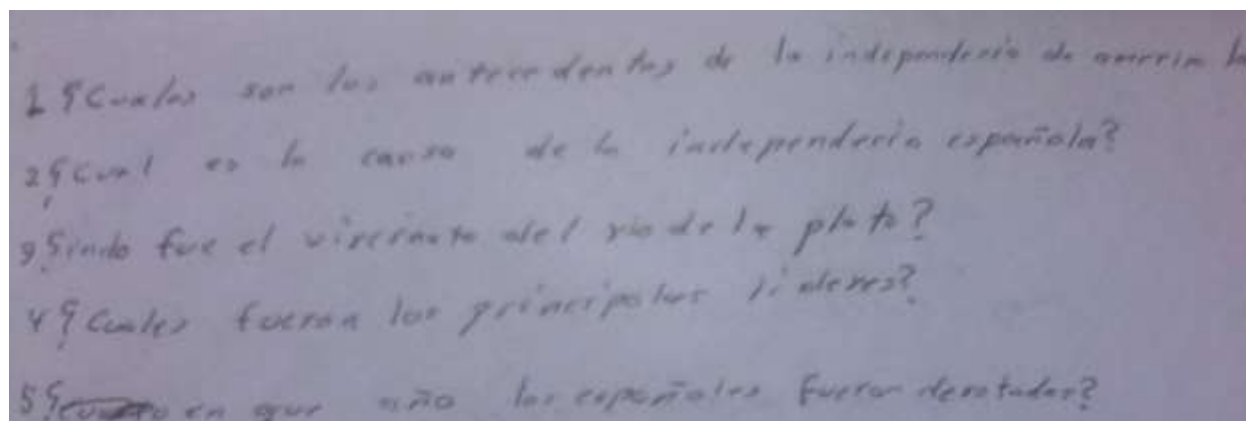 1 ¿Cuales son los antecedentes de la independencia de america la
2 ¿Cual es la causa de la independecia española?
3 ¿ fue el virreinato del rio de la plata?
4 ¿Cuales fueron los principales lideres?
5 ¿ en que año los españoles fueron derotados?